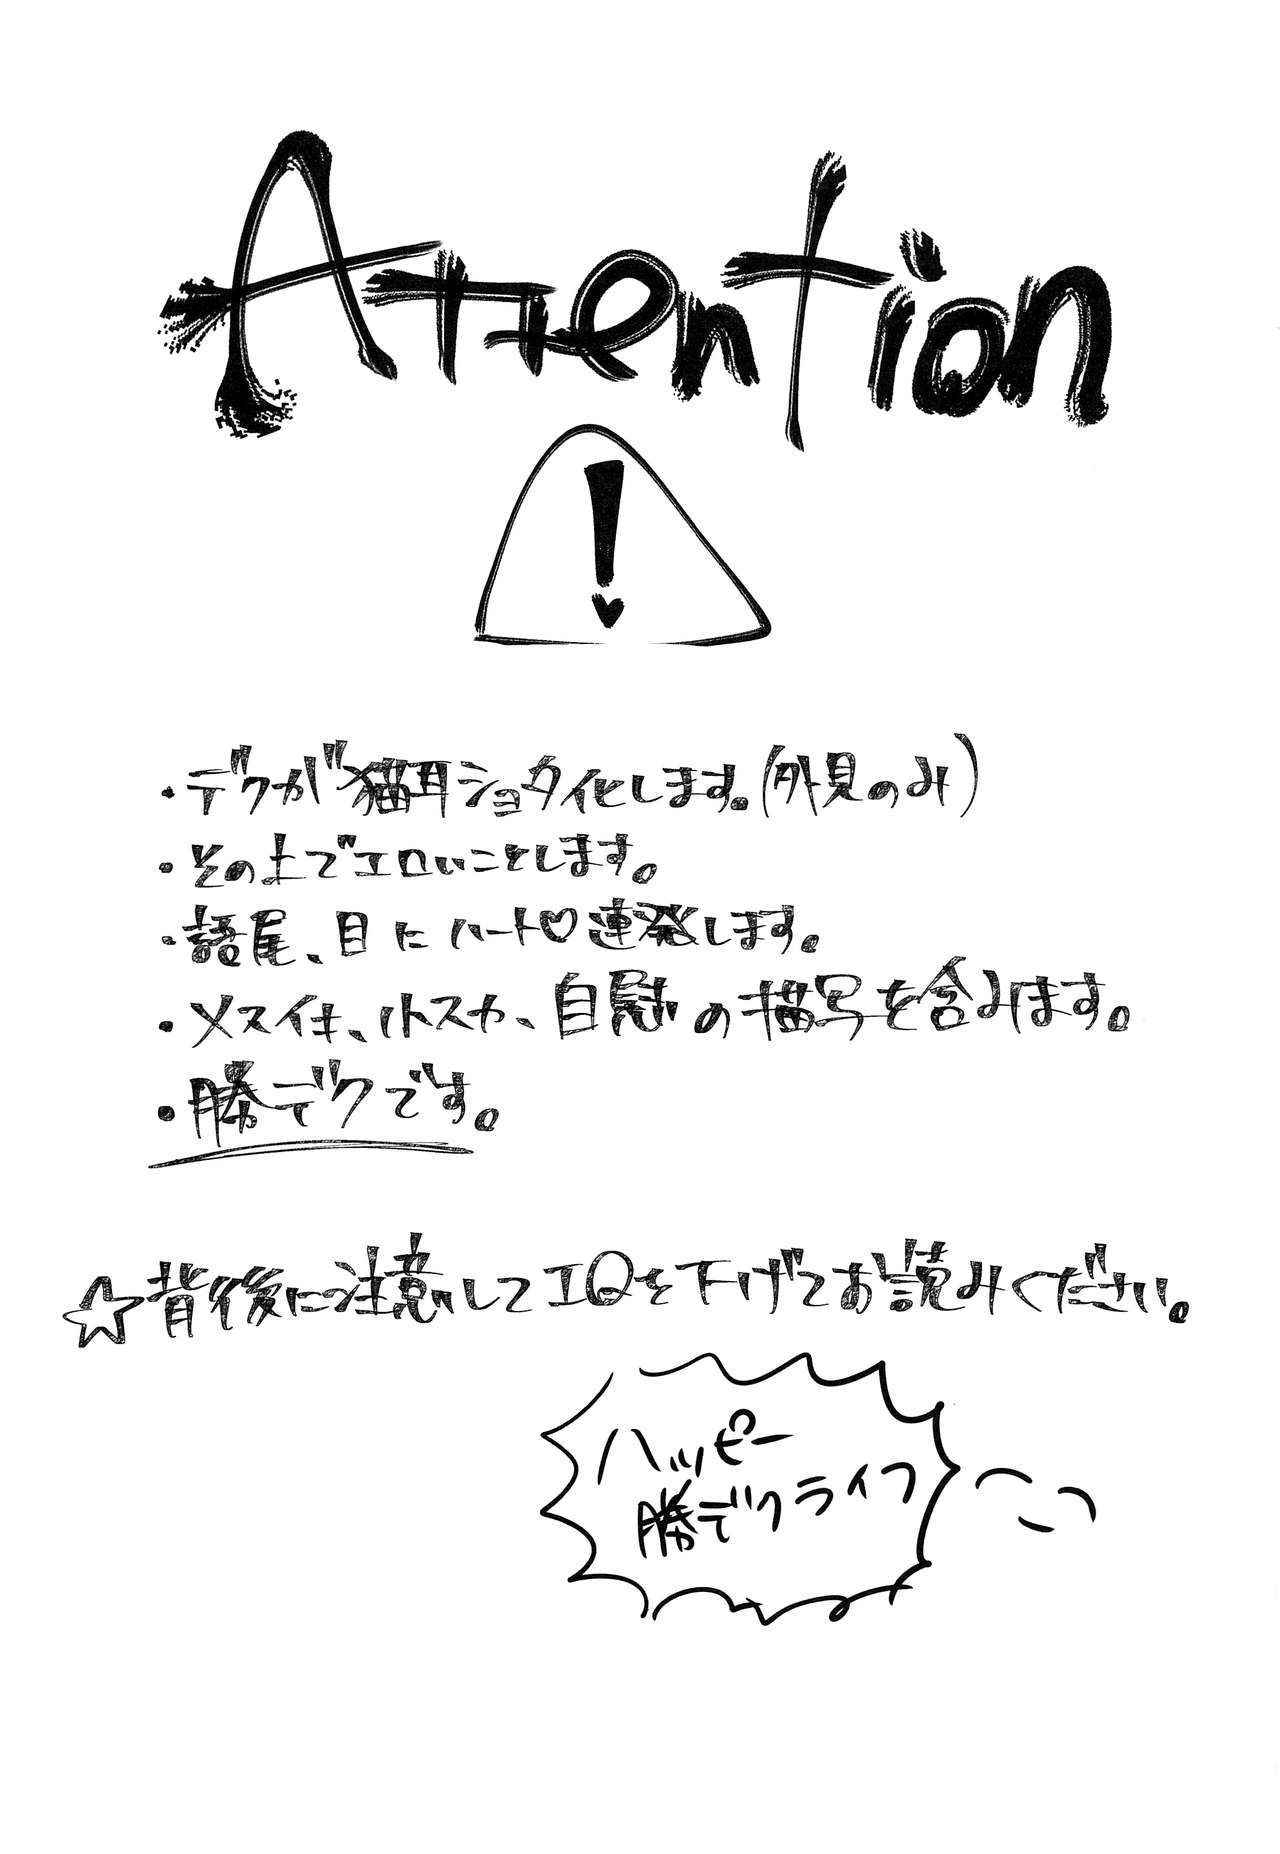 Attention
!
・デクが猫耳ショタ化します。(外見のみ)
・その上でエロいことします。
・語尾、目にハート♡連発します。
・メスイキ、自慰の描写を含みます。
・勝デクです。
☆背後に注意してIQを下げてお読みください。
ハッピー
勝デクライフ